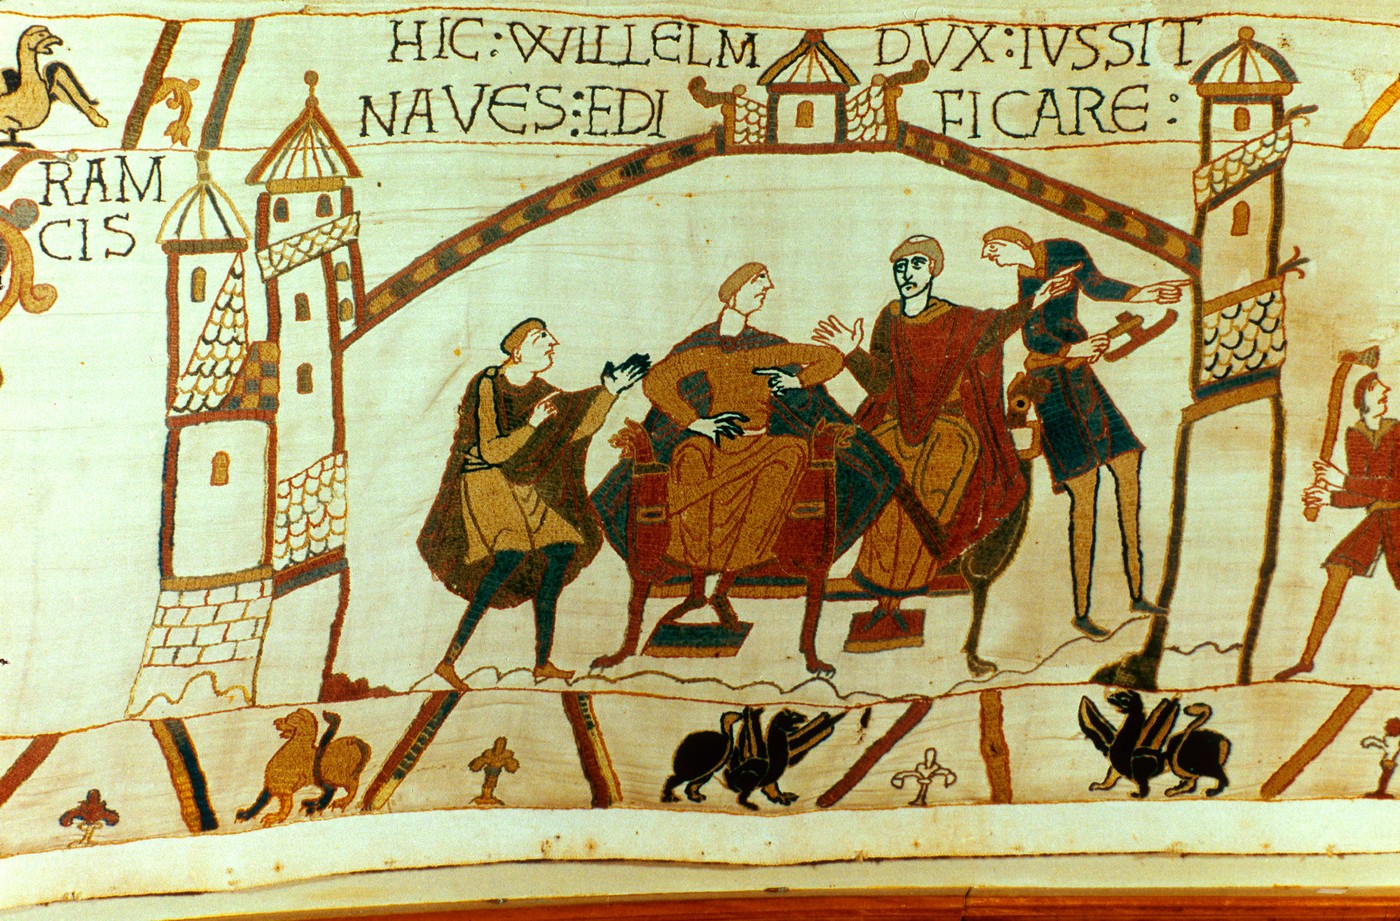 HIC : WILLELM DUX : IUSSIT
NAVES : EDI FICARE :
RAM
CIS